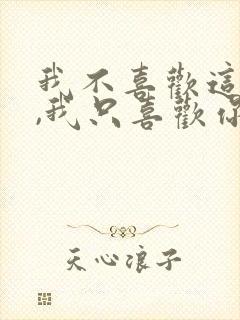 我不喜歡這
,我只喜歡你
天心浪子